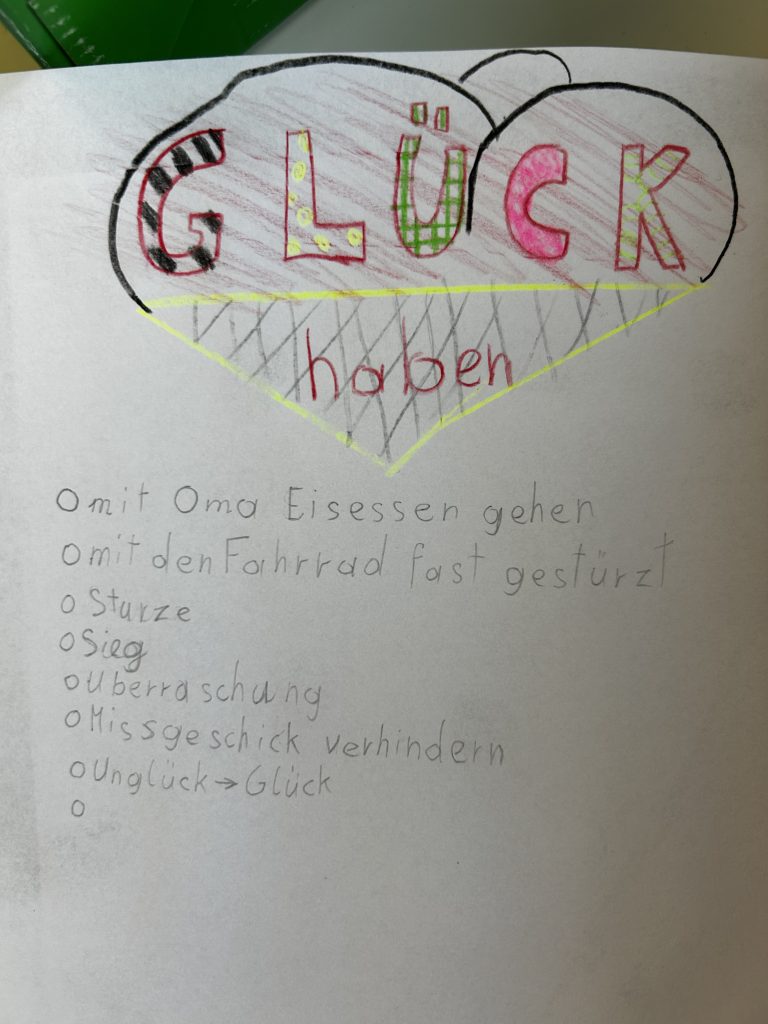 GLÜCK
haben
o mit Oma Eisessen gehen
o mit den Fahrrad fast gestürzt
o Sturze
o Sieg
o Uberraschung
o Missgeschick verhindern
o Unglück → Glück
o